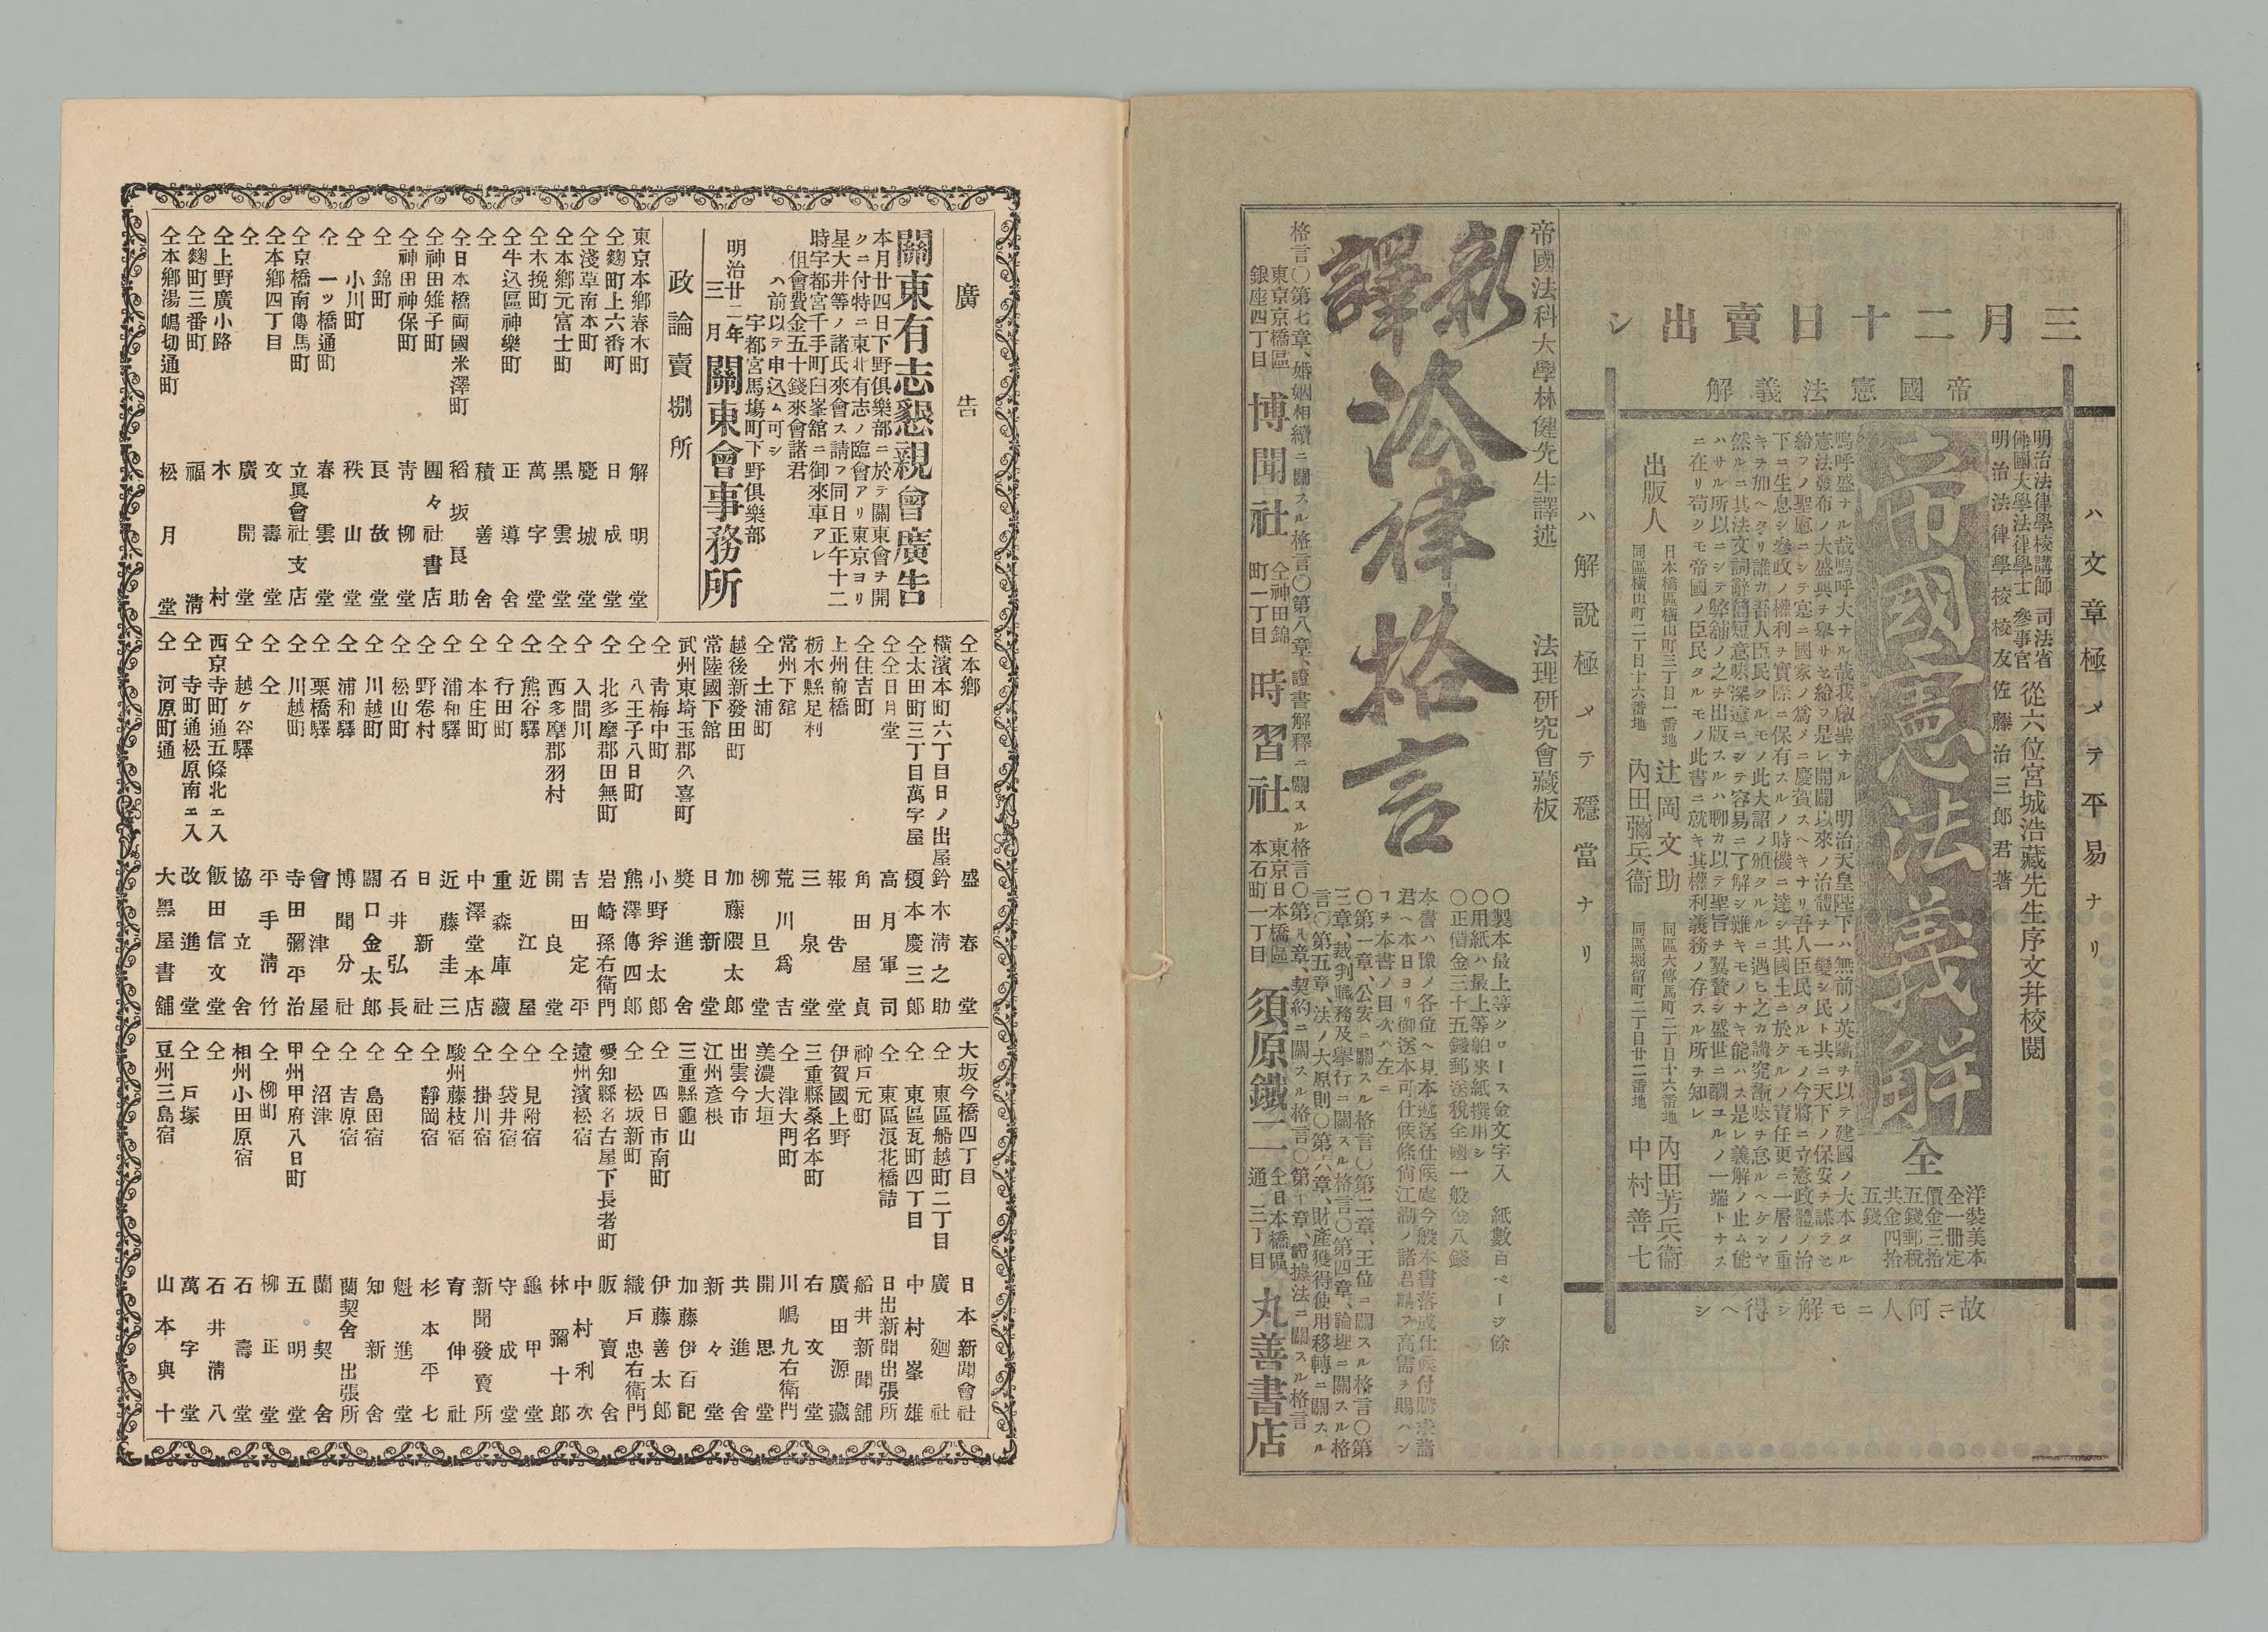 三月二十日賣出シ
ハ文章極メテ平易ナリ
帝國憲法義解
明治法律學校講師 司法省
佛國大學法律學士 參事官
從六位宮城浩藏先生序文幷校閱
明治法律學校校友佐藤治三郎君著
帝國憲法義解
全
洋裝美本
全一冊定
價金三拾
五錢郵稅
共金四拾
五錢
嗚呼盛ナル哉嗚呼大ナル哉我叡聖ナル 明治天皇陛下ハ無前ノ英斷ヲ以テ建國ノ大本タル
憲法發布ノ大盛典ヲ擧サセ給フ是レ開闢以來ノ治體ヲ一變シ民ト共ニ天下ノ保安ヲ謀ラセ
給フノ聖慮ニシテ寔ニ國家ノ爲メニ慶賀スヘキナリ吾人臣民タルモノ今將ニ立憲政體ノ治
下ニ生息シ參政ノ權利ヲ實際ニ保有スルノ時機ニ達シ其國土ニ於ケルノ責任更ニ一層ノ重
キヲ加ヘタリ誰カ吾人臣民タルモノ此大詔ノ頒タルルニ遇ヒ之カ講究翫味ヲ怠ルヘケンヤ
然ルニ其法文詞辭簡短意味深遠ニシテ容易ニ了解シ難キモノナキ能ハス是レ義解ノ止ム能
ハサル所以ニシテ弊舖ノ之ヲ出版スルハ聊カ以テ聖旨ヲ翼賛シ盛世ニ酬ユルノ一端トナス
ニ在リ苟クモ帝國ノ臣民タルモノ此書ニ就キ其權利義務ノ存スル所ヲ知レ
出版人
日本橋區橫山町三丁目一番地 辻岡文助
同區大傳馬町二丁目十六番地 內田芳兵衞
同區橫山町二丁目十六番地 內田彌兵衞
同區堀留町二丁目廿二番地 中村善七
故ニ何人ニモ解シ得ヘシ
ハ解說極メテ穩當ナリ
帝國法科大學林健先生譯述 法理研究會藏板
新譯 法律格言
〇製本最上等クロース金文字入 紙數百ページ餘
〇用紙ハ最上等舶來紙撰用シ
〇正價金三十五錢郵送稅全國一般金八錢
本書ハ豫ノ各位ヘ見本遞送仕候處今般本書落成仕候付購求諸
君ヘ本日ヨリ御送本可仕候條尙江湖ノ諸君購フ高需ヲ賜ハン
コヲ本書ノ目次ハ左ニ
〇第一章、公安ニ關スル格言〇第二章、王位ニ關スル格言〇第
三章、裁判職務及擧行ニ關スル格言〇第四章、論理ニ關スル格
言〇第五章、法ノ大原則〇第六章、財產獲得使用移轉ニ關スル
格言〇第七章、婚姻相續ニ關スル格言〇第八章、證書解釋ニ關スル格言〇第九章、契約ニ關スル格言〇第十章、證據法ニ關スル格言
東京京橋區
銀座四丁目
博聞社
仝神田錦
町一丁目
時習社
東京日本橋區
本石町一丁目
須原鐵二
仝日本橋區
通三丁目
丸善書店
廣告
關東有志懇親會廣告
本月廿四日下野俱樂部ニ於テ關東會ヲ開
クニ付特ニ東北有志ノ臨會アリ東京ヨリ
星大井等ノ諸氏來會ス請フ同日正午十二
時宇都宮千手町臼峯舘ニ御來車アレ
但會費金五十錢來會諸君
ハ前以テ申込ム可シ
宇都宮馬塲町下野俱樂部
明治廿二年
三月
關東會事務所
政論賣捌所
東京本鄕春木町 解明堂
仝麴町上六番町 日成堂
仝淺草南本町 慶城堂
仝本鄕元富士町 黑雲堂
仝木挽町 萬字堂
仝牛込區神樂町 正導舍
仝 積善舍
仝日本橋兩國米澤町 稻坂良助
仝神田雉子町 團々社書店
仝神田神保町 靑柳堂
仝 錦町 良故堂
仝 小川町 秩山堂
仝 一ッ橋通町 春雲堂
仝京橋南傳馬町 立興會社支店
仝本鄕四丁目 文壽堂
仝 廣開堂
仝上野廣小路 木村
仝麴町三番町 福淸
仝本鄕湯嶋切通町 松月堂
仝本鄕 盛春堂
橫濱本町六丁目日ノ出屋 鈴木淸之助
仝太田町三丁目萬字屋 榎本慶三郎
仝仝日月堂 高月軍司
仝住吉町 角田屋貞
上州前橋 報告堂
栃木縣足利 三泉堂
常州下舘 荒川爲吉
仝 土浦町 柳旦堂
越後新發田町 加藤隈太郎
常陸國下舘 日新堂
武州東埼玉郡久喜町 獎進舍
仝 靑梅中町 小野斧太郎
仝 八王子八日町 熊澤傳四郎
仝 北多摩郡田無町 岩崎孫右衞門
仝 入間川 吉田定平
仝 西多摩郡羽村 開良堂
仝 熊谷驛 近江屋
仝 行田町 重森庫藏
仝 本庄町 中澤堂本店
仝 浦和驛 近藤圭三
仝 野卷村 日新社
仝 松山町 石井弘長
仝 川越町 關口金太郎
仝 浦和驛 博聞分社
仝 栗橋驛 會津屋
仝 川越町 寺田彌平治
仝 仝 平手淸竹
仝 越ケ谷驛 協立舍
西京寺町通五條北ェ入 飯田信文堂
仝 寺町通松原南ェ入 改進堂
仝 河原町通 大黑屋書舖
大坂今橋四丁目 日本新聞會社
仝 東區船越町二丁目 廣廻社
仝 東區瓦町四丁目 中村峯雄
仝 東區浪花橋詰 日出新聞出張所
神戶元町 船井新聞舖
伊賀國上野 廣田源藏
三重縣桑名本町 右文堂
仝 津大門町 川嶋九右衞門
美濃大垣 開思堂
出雲今市 共進舍
江州彥根 新々堂
三重縣龜山 加藤伊百記
仝 四日市南町 伊藤善太郎
仝 松坂新町 織戶忠右衞門
愛知縣名古屋下長者町 販賣舍
遠州濱松宿 中村利次
仝 林彌十郎
仝 見附宿 龜甲堂
仝 袋井宿 守成堂
仝 掛川宿 新聞發賣所
駿州藤枝宿 育伸社
仝 靜岡宿 杉本平七
仝 魁進堂
仝 島田宿 知新舍
仝 吉原宿 蘭契舍出張所
仝 沼津 蘭契舍
甲州甲府八日町 五明堂
仝 柳町 柳正堂
相州小田原宿 石壽堂
仝 石井淸八
仝 戶塚 萬字堂
豆州三島宿 山本與十